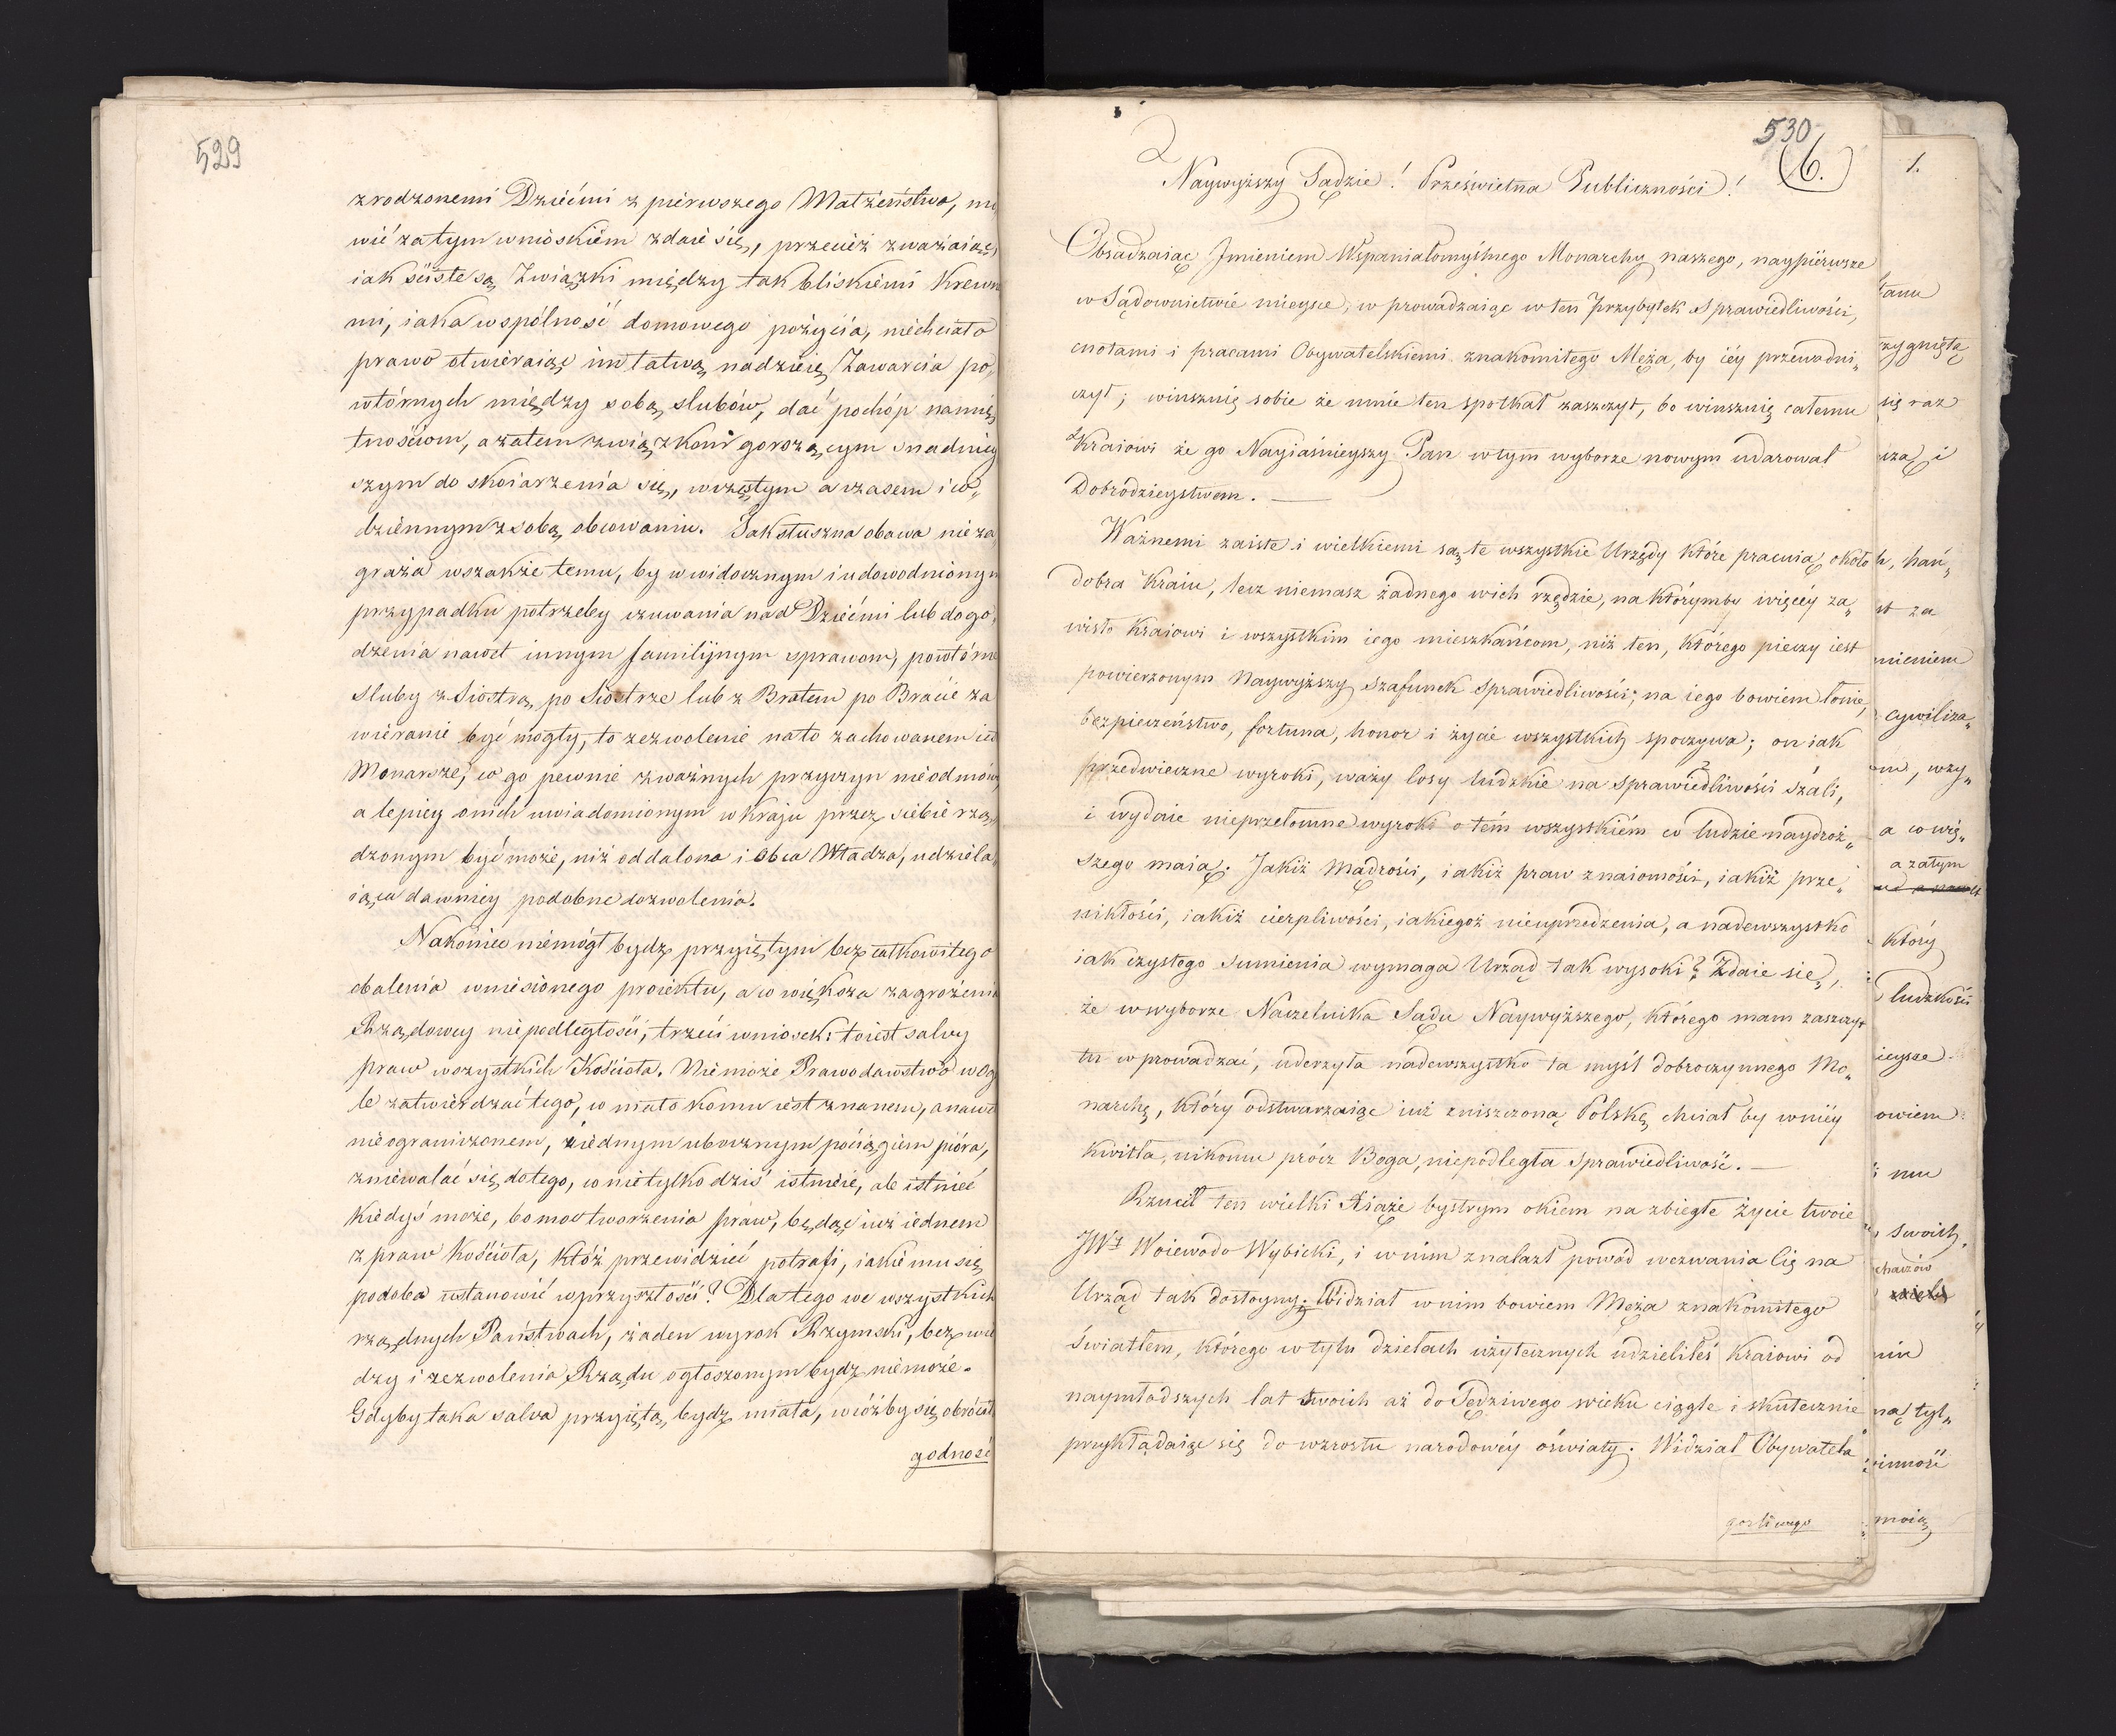 529
zrodzonemi Dziećmi z pierwszego Małżeństwa, mó
wić za tym wnioskiem zdaie się, przecież zważaiąc,
iak ściste są Związki między tak bliskiemi Krewne
mi, iaka wspólność domowego pożycia, niechciało
prawo otwieraiąc im łatwą nadzieię Zawarcia po„
wtórnych między sobą slubów, dać pochóp namię„
tnościom, a zatem związkom gorszącym snadniey
szym do skoiarzenia się, w częstym a czasem i co„
dziennym z sobą obcowaniu. Jak słuszna obawa nie za„
graża wszakże temu, by w widocznym i udowodnionym
przypadku potrzeby czuwania nad Dziećmi lub dogo„
dzenia nawet innym familijnym sprawom, powtórne
sluby z Siostrą po Siostrze lub z Bratem po Bracie za
wierane być mogły, to zezwolenie na to zachowanem iest
Monarsze, co go pewnie z ważnych przyczyn nieodmówi,
a lepiey o nich uwiadomionym w kraju przez siebie rzą„
dzonym być może, niż oddalona i obca Władza, udziela„
iąca dawniey podobne dozwolenia.
Nakoniec niemógł bydz przyiętym bez całkowitego
obalenia wniesionego proiektu, a co większa zagrożenia
Rządowey niepodległości, trzeci wniosek: to iest salvy
praw wszystkich Kościoła. Nie może Prawodawstwo w Ogó
le zatwierdzać tego, co mało komu iest znanem, a nawet
nieograniczonem, iednym ubocznym pociągiem pióra,
zniewalać się do tego, co nie tylko dziś istnieie, ale istnieć
kiedyś może, bo moc tworzenia praw, będąc iuż iednem
z praw Kościoła, któż przewidzieć potrafi, iakie mu się
podoba ustanowić w przyszłości? Dla tego we wszystkich
rządnych Państwach, żaden wyrok Rzymski, bez wie
dzy i zezwolenia Rządu ogłoszonym bydz niemoże.
Gdyby taka salva przyiętą bydz miała, w cóżby się obróciła
godność
530
(6.)
Naywyższy Sądzie! Prześwietna Publiczności!
Obsadzaiąc Jmieniem Wspaniałomyślnego Monarchy naszego, naypiérwsze
w Sądownictwie mieysce, w prowadzaiąc w ten Przybytek Sprawiedliwości,
cnotami i pracami Obywatelskiemi znakomitego Męża, by iéy przewodni„
czył; winszuię sobie że mnie ten spotkał zaszczyt, bo winszuię całemu
Kraiowi że go Nayiaśnieyszy Pan w tym wyborze nowym udarował
Dobrodzieystwem. —
Ważnemi zaiste i wielkiemi są te wszystkie Urzędy które pracuią około
dobra Kraiu, lecz niemasz żadnego w ich rzędzie, na którymby więcéy za„
wisło Kraiowi i wszystkim iego mieszkańcom, niż ten, którego pieczy iest
powierzonym Naywyższy szafunek sprawiedliwości; na iego bowiem łonie,
bezpieczeństwo, fortuna, honor i życie wszystkich spoczywa; on iak
przedwieczne wyroki, waży losy ludzkie na sprawiedliwości szali,
i wydaie nieprzełomne wyroki o tém wszystkiém co ludzie naydroż„
szego maią. Jakiż Mądrości, iakiż praw znaiomości, iakiż prze„
nikłości, iakiż cierpliwości, iakiegoż nieuprzedzenia, a nadewszystko
iak czystego sumienia wymaga Urząd tak wysoki? Zdaie się,
że w wyborze Naczelnika Sądu Naywyższego, którego mam zaszczyt
tu wprowadzać, uderzyła nadewszystko ta myśl dobroczynnego Mo„
narchę, który odstwarzaiąc iuż zniszczoną Polskę, chciał by w niéy
kwitła, nikomu prócz Boga, niepodległa Sprawiedliwość. —
Rzucił ten wielki Xiąże bystrym okiem na zbiegłe życie twoie
JWy Woiewodo Wybicki, i w nim znalazł powód wezwania Cię na
Urząd tak dostoyny. Widział w nim bowiem Męża znakomitego
światłem, którego w tylu dziełach użytecznych udzieliłeś Kraiowi od
naymłodszych lat twoich aż do Sędziwego wieku ciągle i skutecznie
przykładaiąc się do wzrostu narodowéy oświaty. Widział Obywatela
gorliwego
1.
tanu
zygniętą
się raz
cza i
h, hań„
st za
mieniem
cywiliza„
a co wię„
a zatym
który
ludzkości
ieysce
owiem
mu
swoich
nin
ną tyl„
inność
moią,